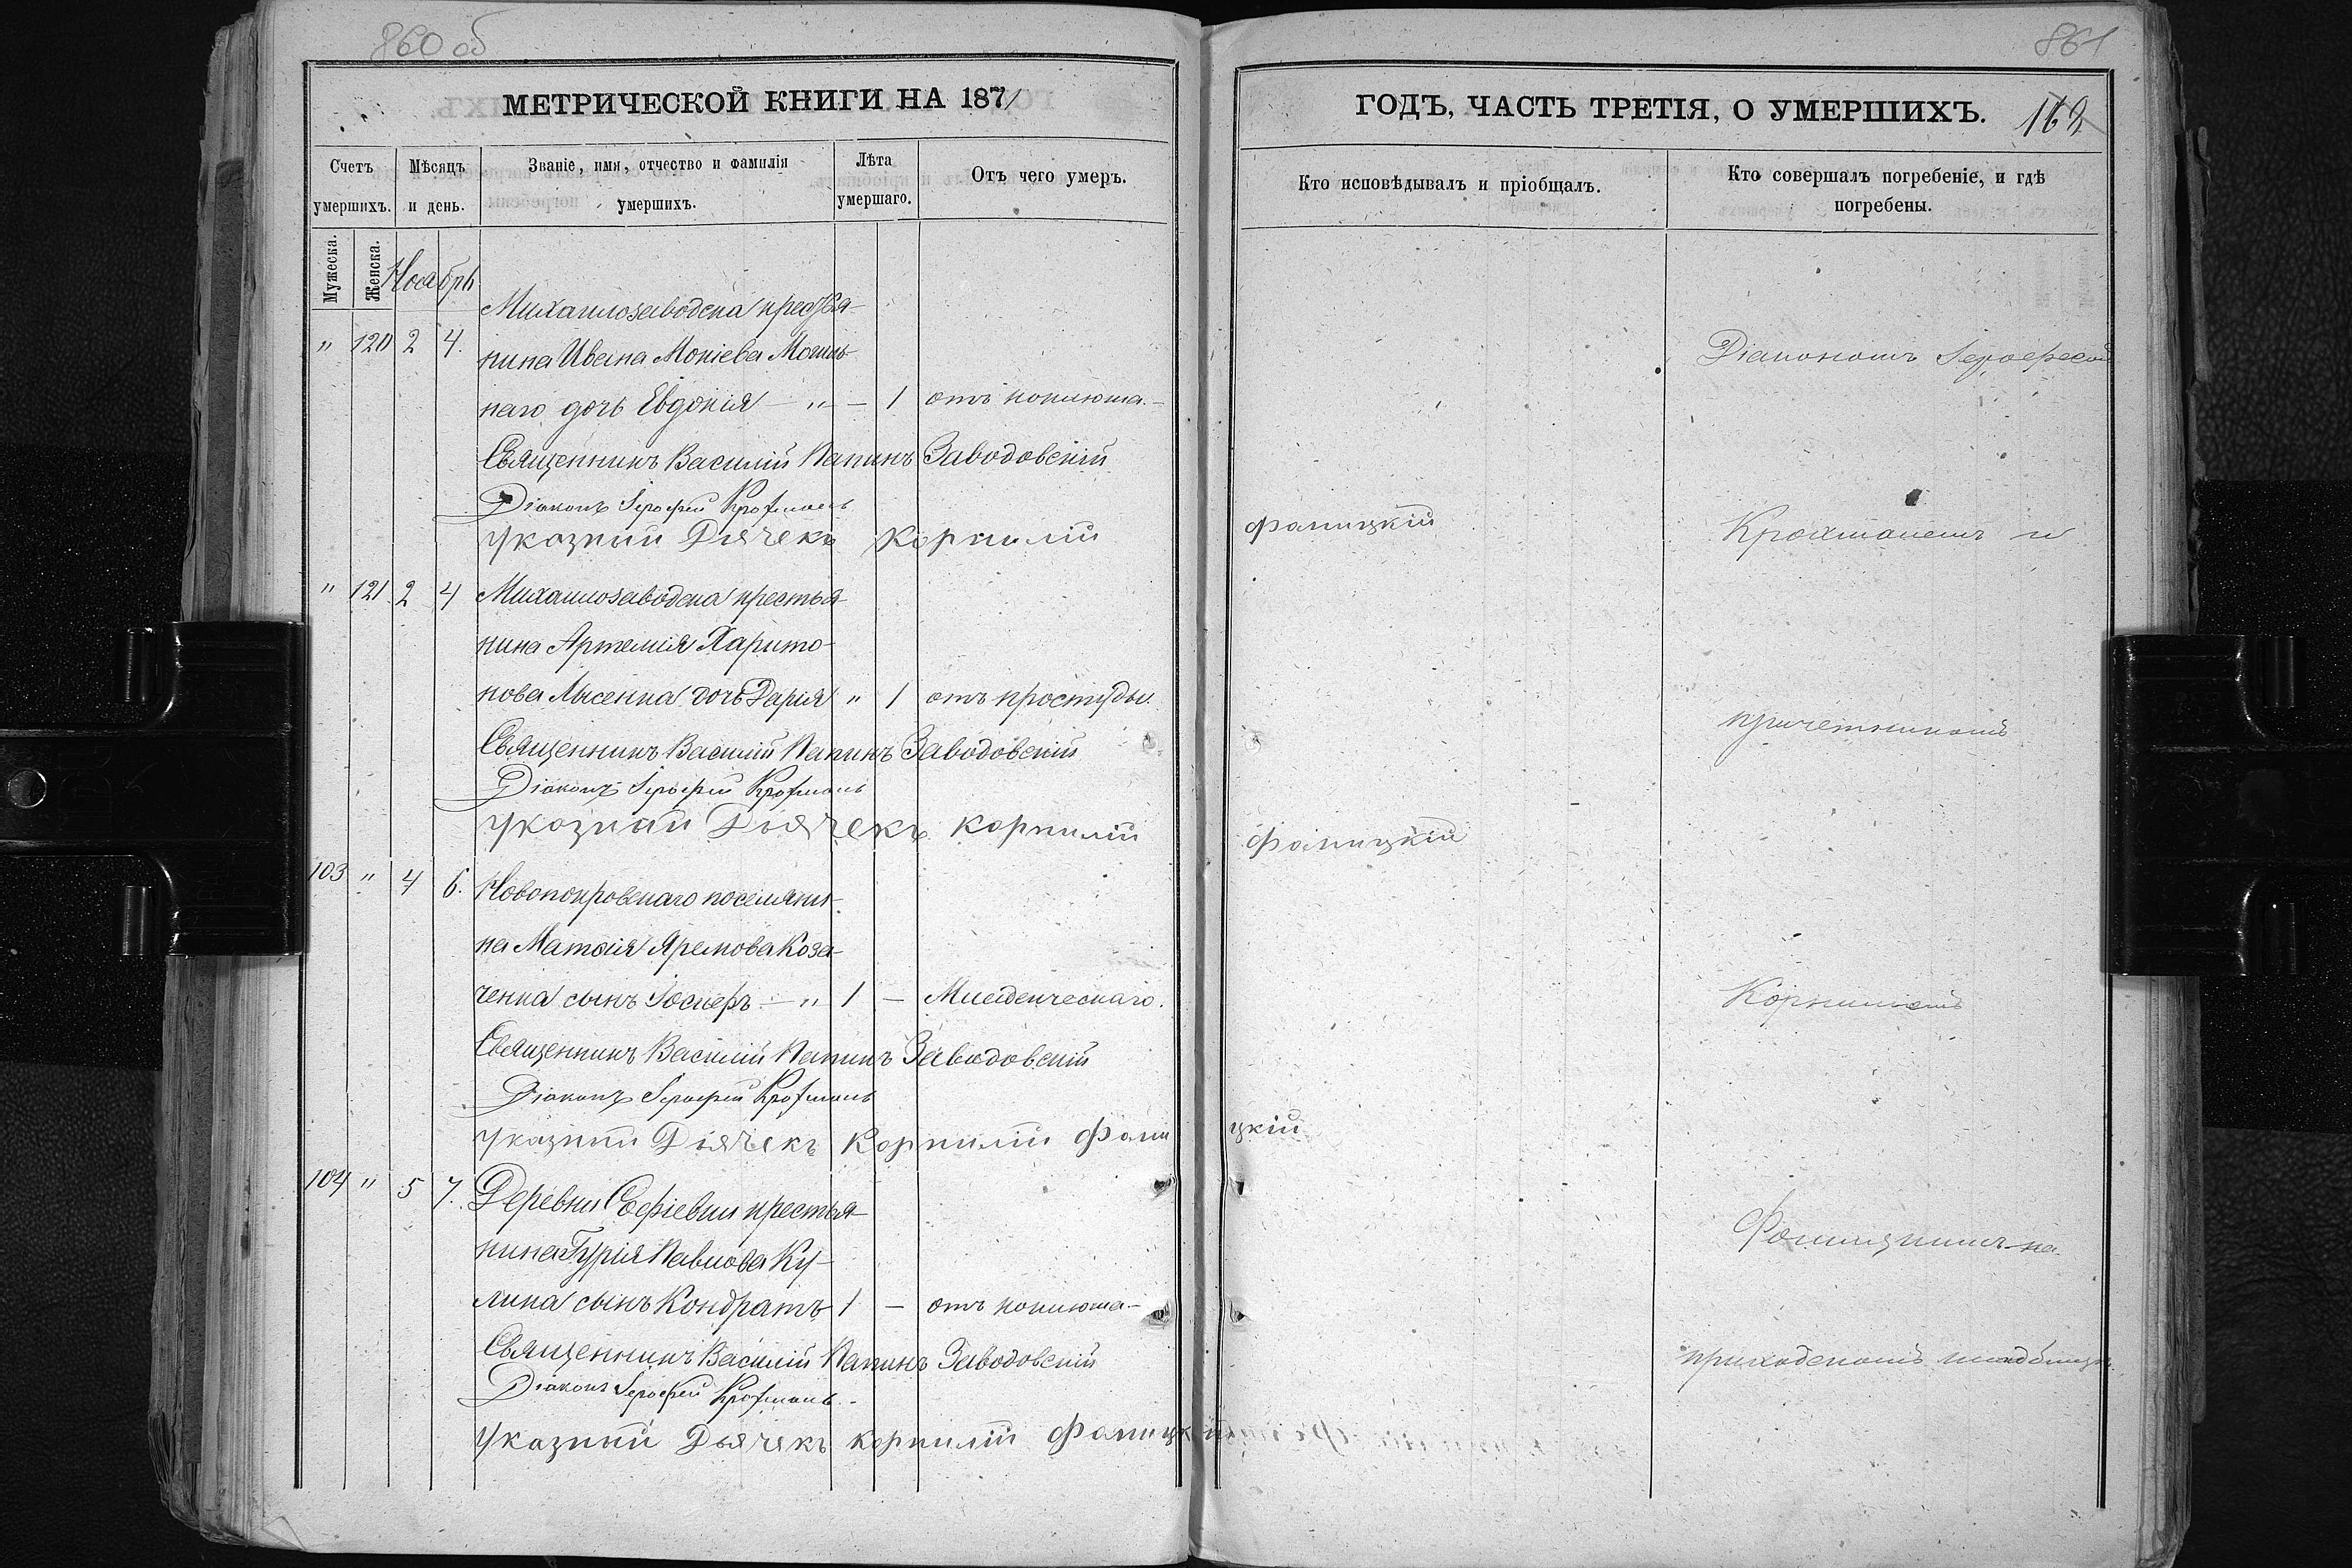 860 об
МЕТРИЧЕСКОЙ КНИГИ НА 1871
Счетъ умершихъ.
Мѣсяцъ и день.
Званіе, имя, отчество и фамилія умершихъ.
Лѣта умершаго.
Отъ чего умеръ.
Мужеска.
Женска.
Ноабрь
Михаилозаводска крестья-
" 120 2 4. нина Ивана Мокіева Могиль-
наго дочь Евдокія — " — 1 отъ коклюша.—
Священникъ Василій Капинъ Заводовскій
Діаконъ Іерофей Крохмаль
Указный Дячекъ Корнилій
" 121 2 4 Михаилозаводска крестья-
нина Артемія Харито-
нова Лысенка дочь Дарія " 1 отъ простуды.
Священникъ Василій Капинъ Заводовскій
Діаконъ Іерофей Крохмаль
Указный Дьячекъ Корнилій
103 " 4 6. Новопокровскаго поселяни-
на Матѳія Яремова Коза-
ченка сынъ Іосифъ — " 1 — Младенческаго.
Священникъ Василій Капинъ Заводовскій
Діаконъ Іерофей Крохмаль
Указный Діячекъ Корнилій Фани
104 " 5 7. Деревни Софіевки крестья-
нина Гурія Павлова Ку-
лика сынъ Кондратъ 1 — отъ коклюша—
Священникъ Василій Капинъ Заводовскій
Діаконъ Іерофей Крохмаль.
Указный Дьячекъ Корнилій Фаницкій
861
ГОДЪ, ЧАСТЬ ТРЕТІЯ, О УМЕРШИХЪ.
162
Кто исповѣдывалъ и пріобщалъ.
Кто совершалъ погребеніе, и гдѣ погребены.
Діакономъ Іерофеемъ
фаницкій
Крохмалемъ и
причетникомъ
фаницкій
Корниліемъ
цкій
Фаницкимъ на
приходскомъ кладбищѣ.